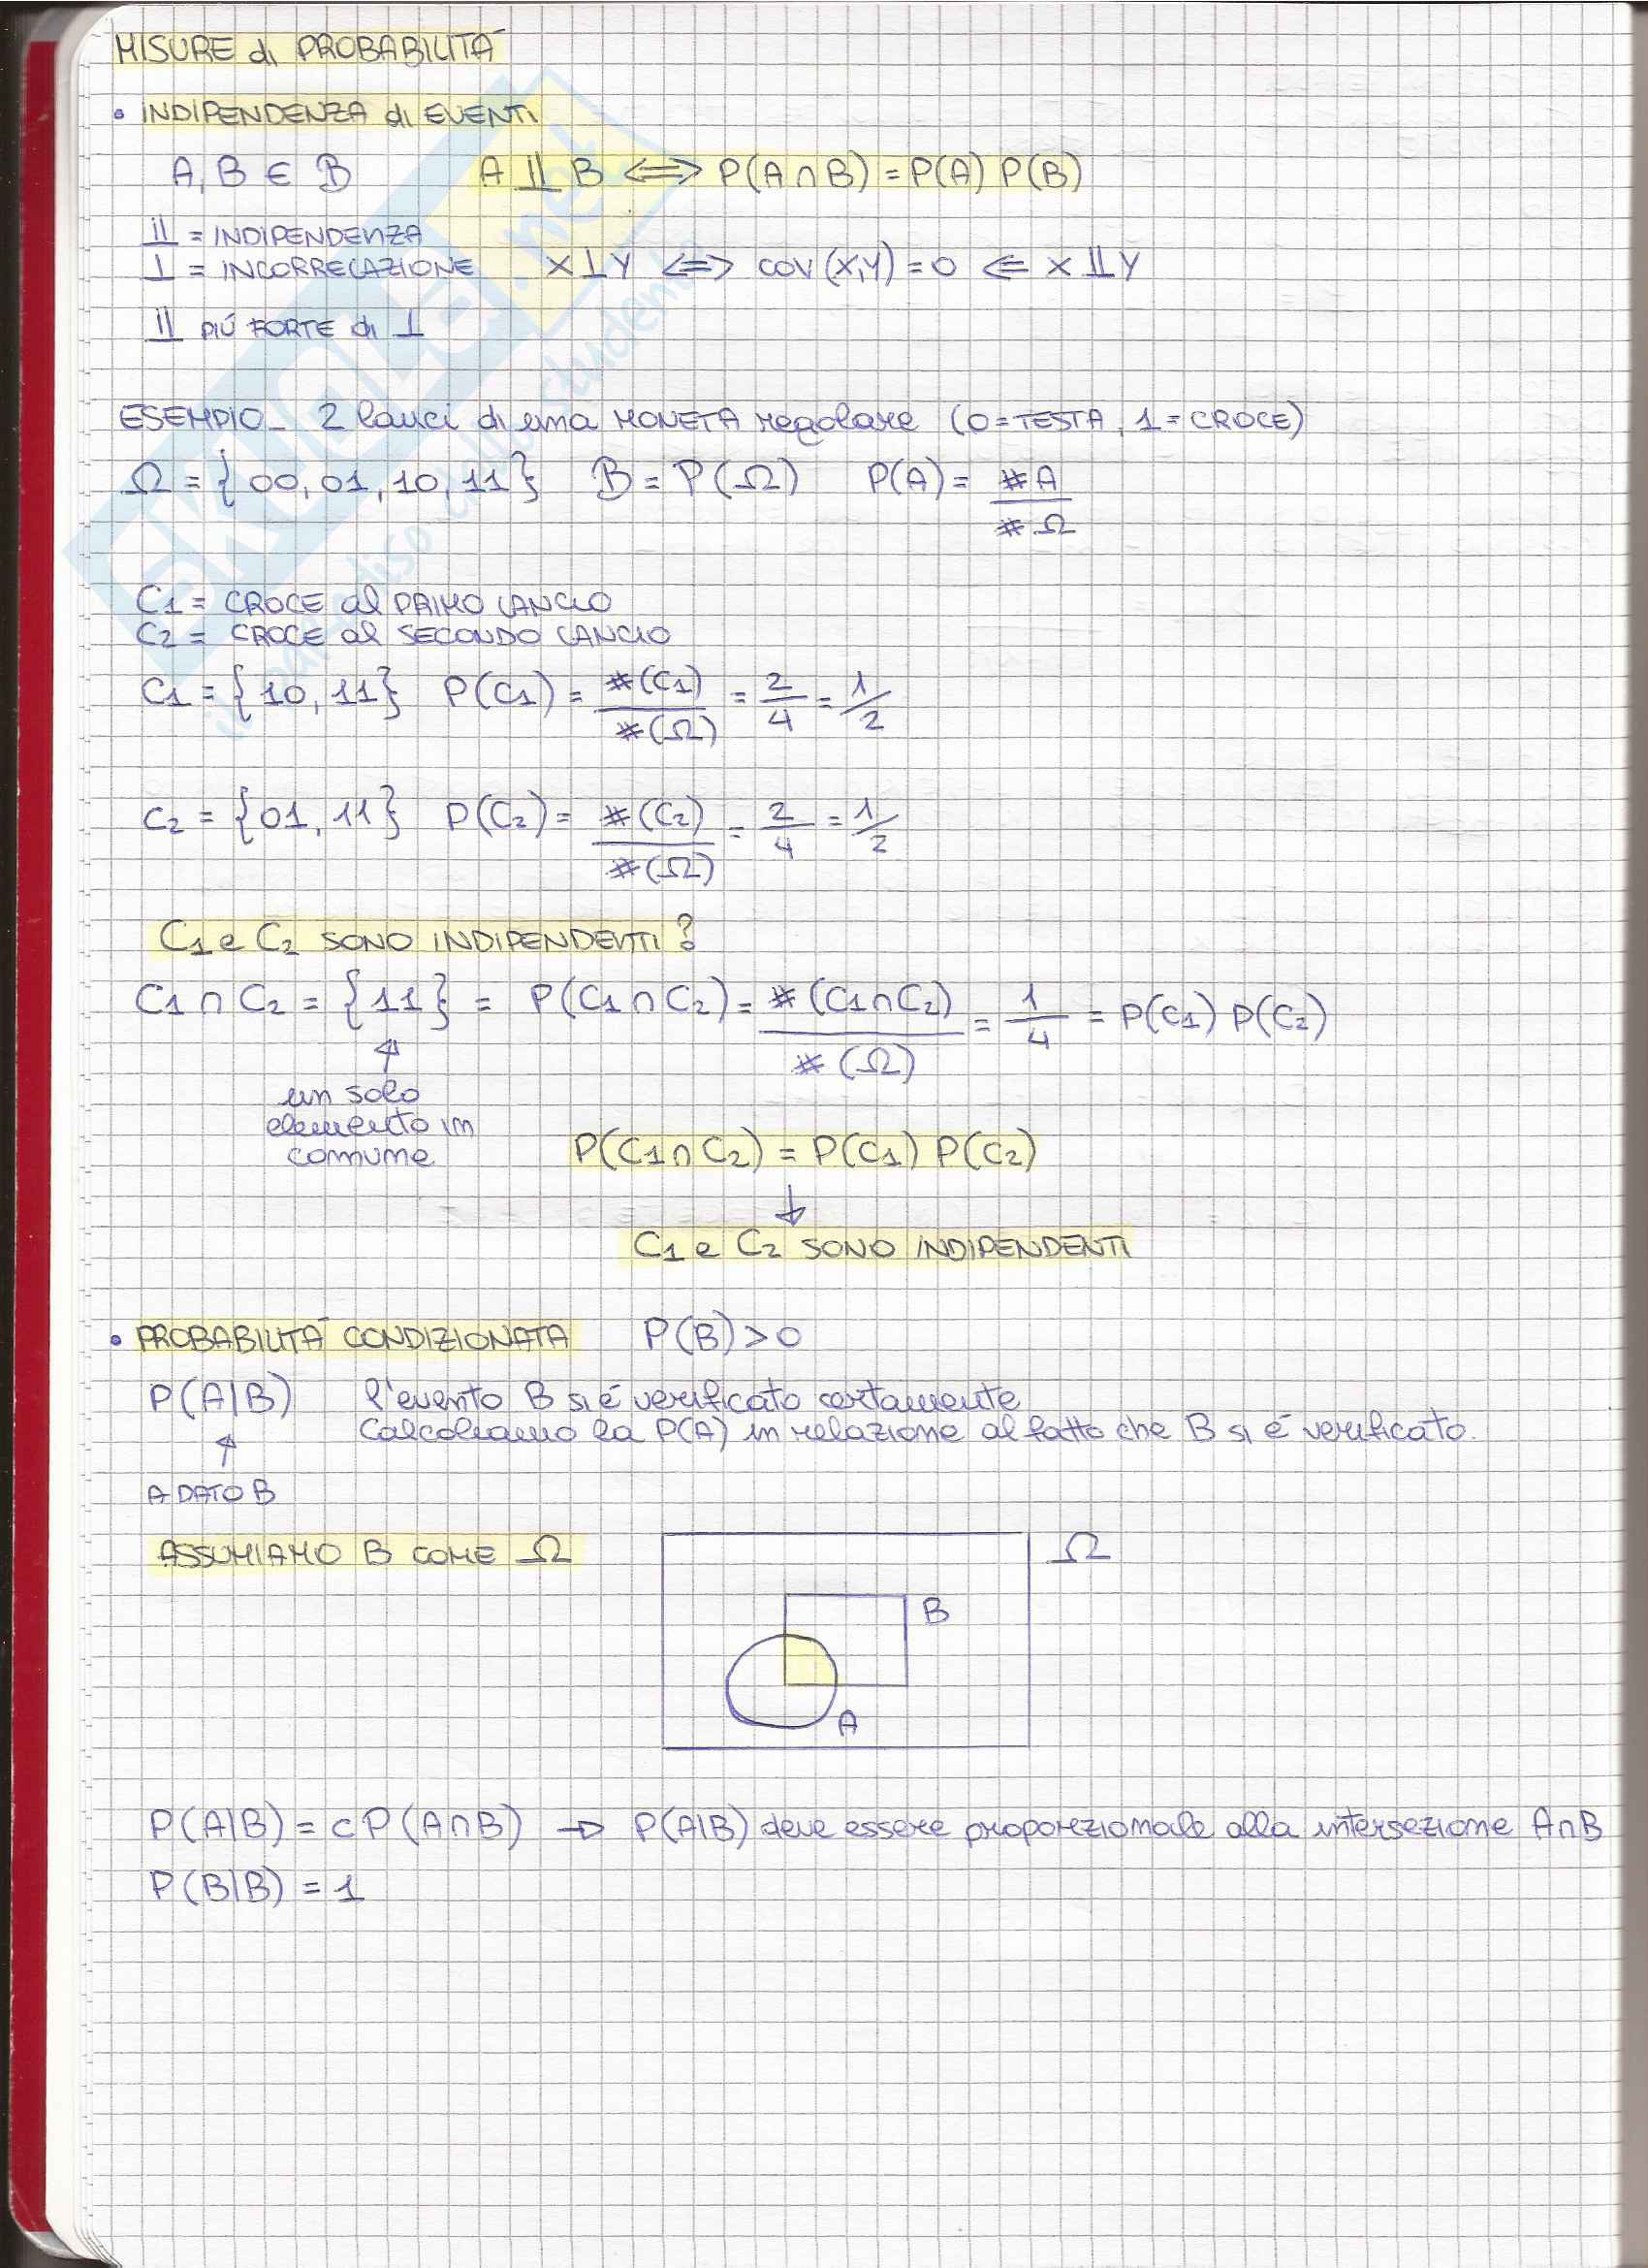 MISURE di PROBABILITÀ
• INDIPENDENZA di EVENTI
A, B ∈ ℬ A ⫫ B ⟺ P(A∩B) = P(A) P(B)
⫫ = INDIPENDENZA
⊥ = INCORRELAZIONE X⊥Y ⟺ COV(X,Y) = 0 ⟸ X⫫Y
⫫ PIÚ FORTE di ⊥
ESEMPIO_ 2 lanci di una MONETA regolare (0=TESTA, 1=CROCE)
Ω = {00, 01, 10, 11} ℬ = P(Ω) P(A) = #A / #Ω
C1 = CROCE al PRIMO LANCIO
C2 = CROCE al SECONDO LANCIO
C1 = {10, 11} P(C1) = #(C1) / #(Ω) = 2/4 = 1/2
C2 = {01, 11} P(C2) = #(C2) / #(Ω) = 2/4 = 1/2
C1 e C2 SONO INDIPENDENTI?
C1 ∩ C2 = {11} = P(C1∩C2) = #(C1∩C2) / #(Ω) = 1/4 = P(C1) P(C2)
↑
un solo
elemento in
comune
P(C1∩C2) = P(C1) P(C2)
↓
C1 e C2 SONO INDIPENDENTI
• PROBABILITÀ CONDIZIONATA P(B) > 0
P(A|B) l'evento B si é verificato certamente
Calcoliamo la P(A) in relazione al fatto che B si é verificato.
↑
A DATO B
ASSUMIAMO B COME Ω
Ω
B
A
P(A|B) = cP(A∩B) → P(A|B) deve essere proporzionale alla intersezione A∩B
P(B|B) = 1